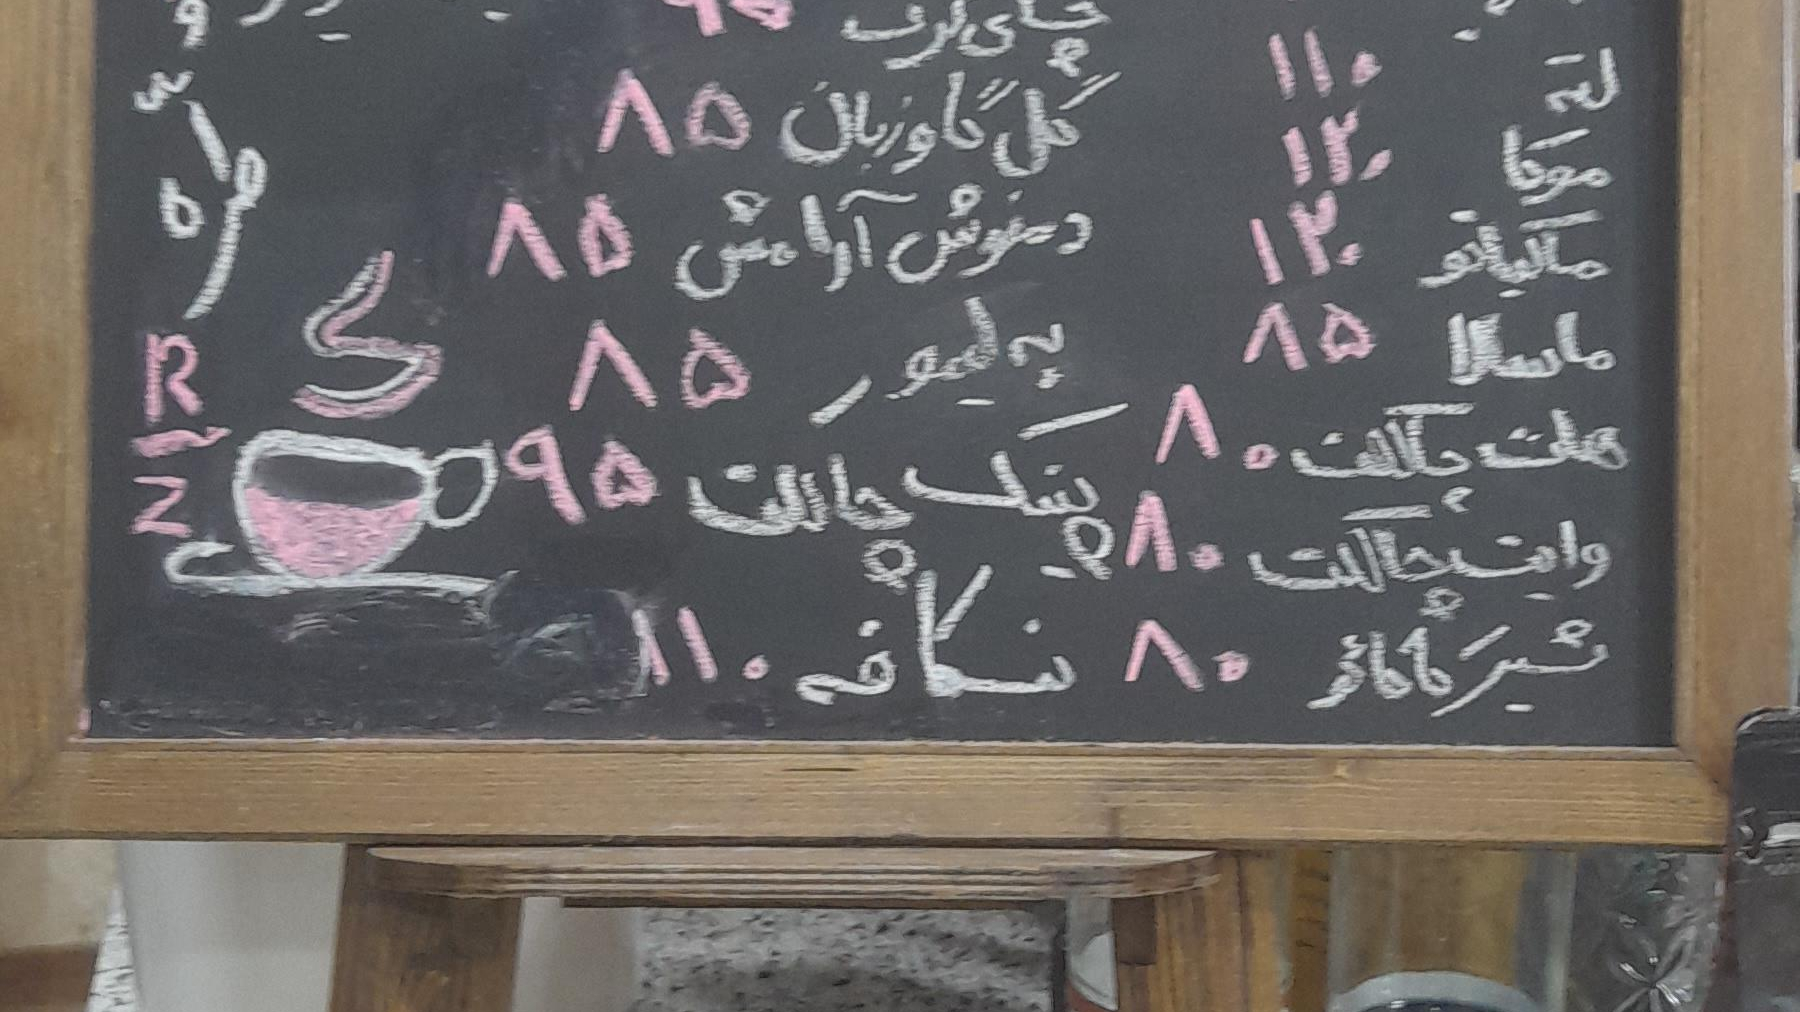 لته ۱۱۰
موکا ۱۲۰
ماکیاتو ۱۳۰
ماسالا ۸۵
هات چاکلت ۸۰
وایت چاکلت ۸۰
شیر کاکائو ۸۰
چای ترش ۹۵
گل گاوزبان ۸۵
دمنوش آرامش ۸۵
به لیمو ۸۵
پینک چاکلت ۹۵
نسکافه ۱۱۰
R
Z